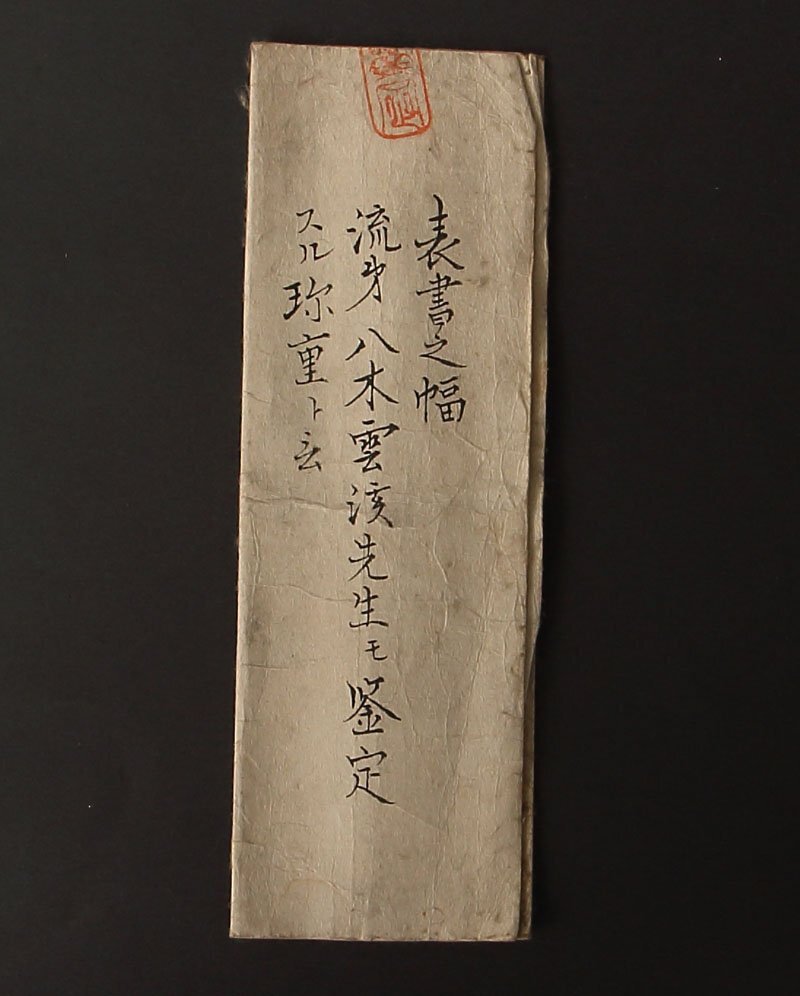 表書之幅
流弟八木雲渓先生モ鑒定
スル珎重ト云